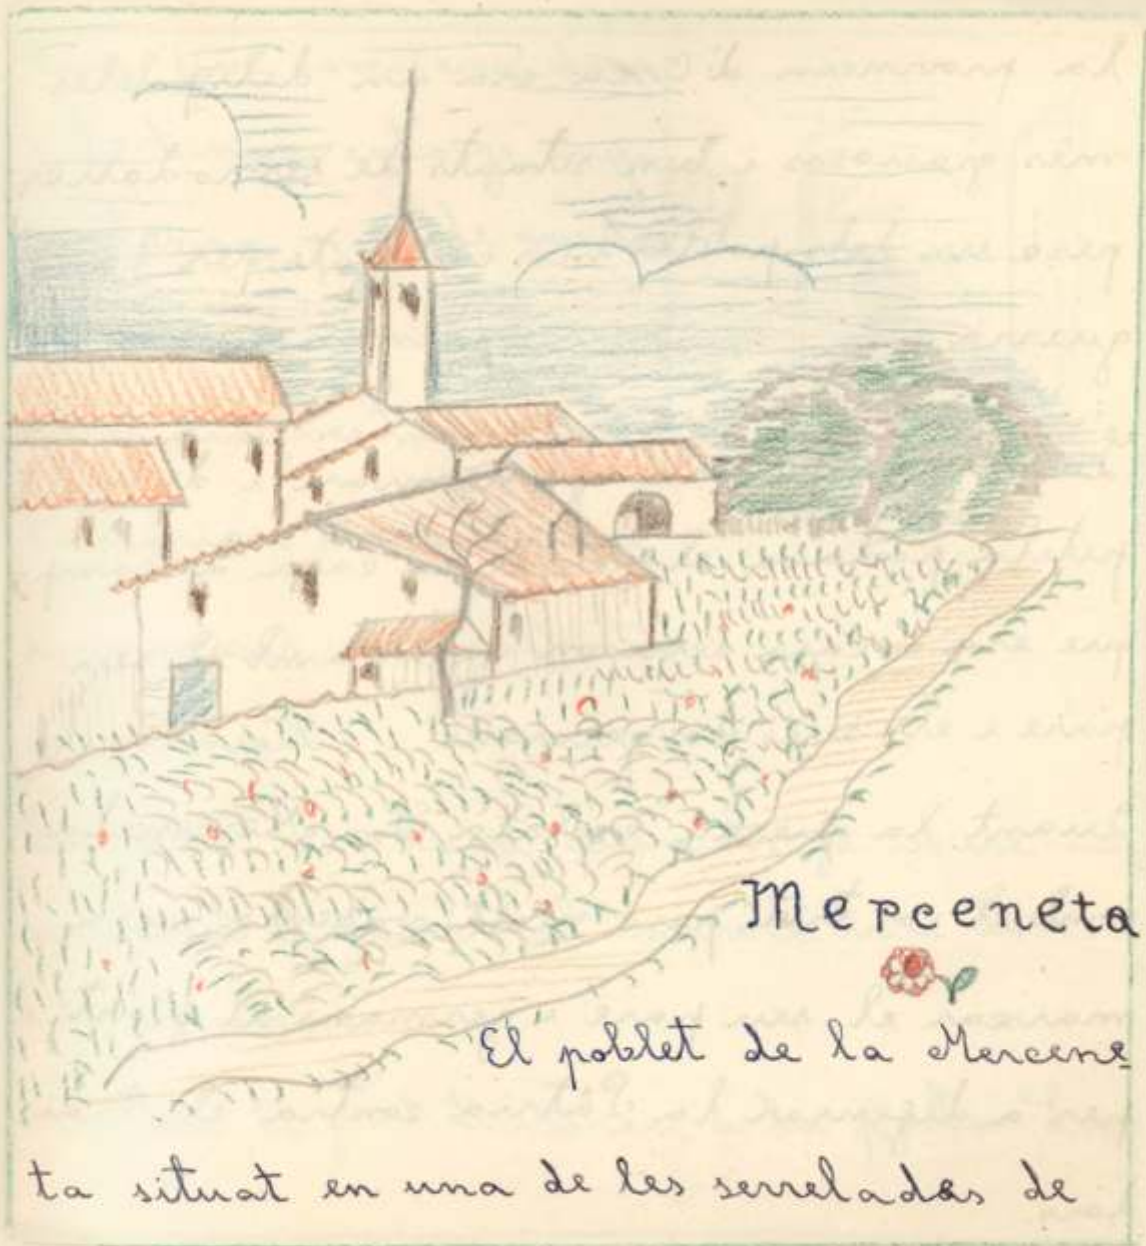 Merceneta
El poblet de la Mercene
ta situat en una de les serrelades de